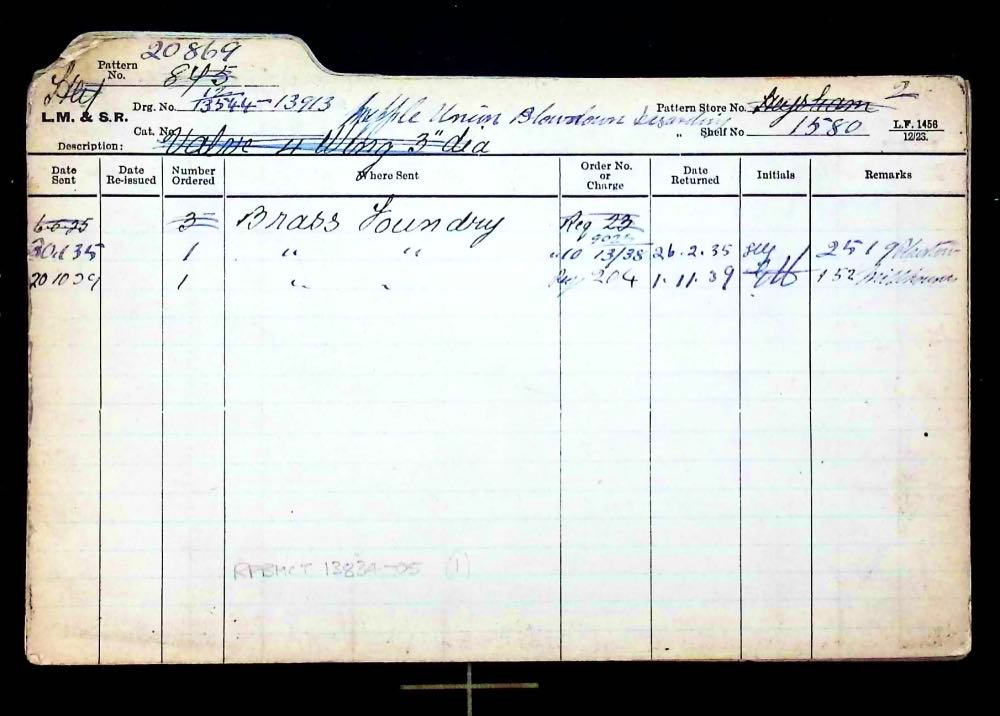 20869
Pattern No. 845
12
Drg. No. 13544 - 13913
L.M. & S.R.
Union Blowdown
Pattern Store No. Heysham 2
Cat. No.
" Shelf No 1580
L.F. 1456
12/23.
Description: Valve 4 Wing 3" dia
Date Sent Date Re-issued Number Ordered Where Sent Order No. or Charge Date Returned Initials Remarks
6-5-25 3 Brass Foundry Req 23
30.1.35 1 " " 10 13/38 26.2.35 251
20 10 39 1 " " 204 1.11.39 152
13834-05 (1)